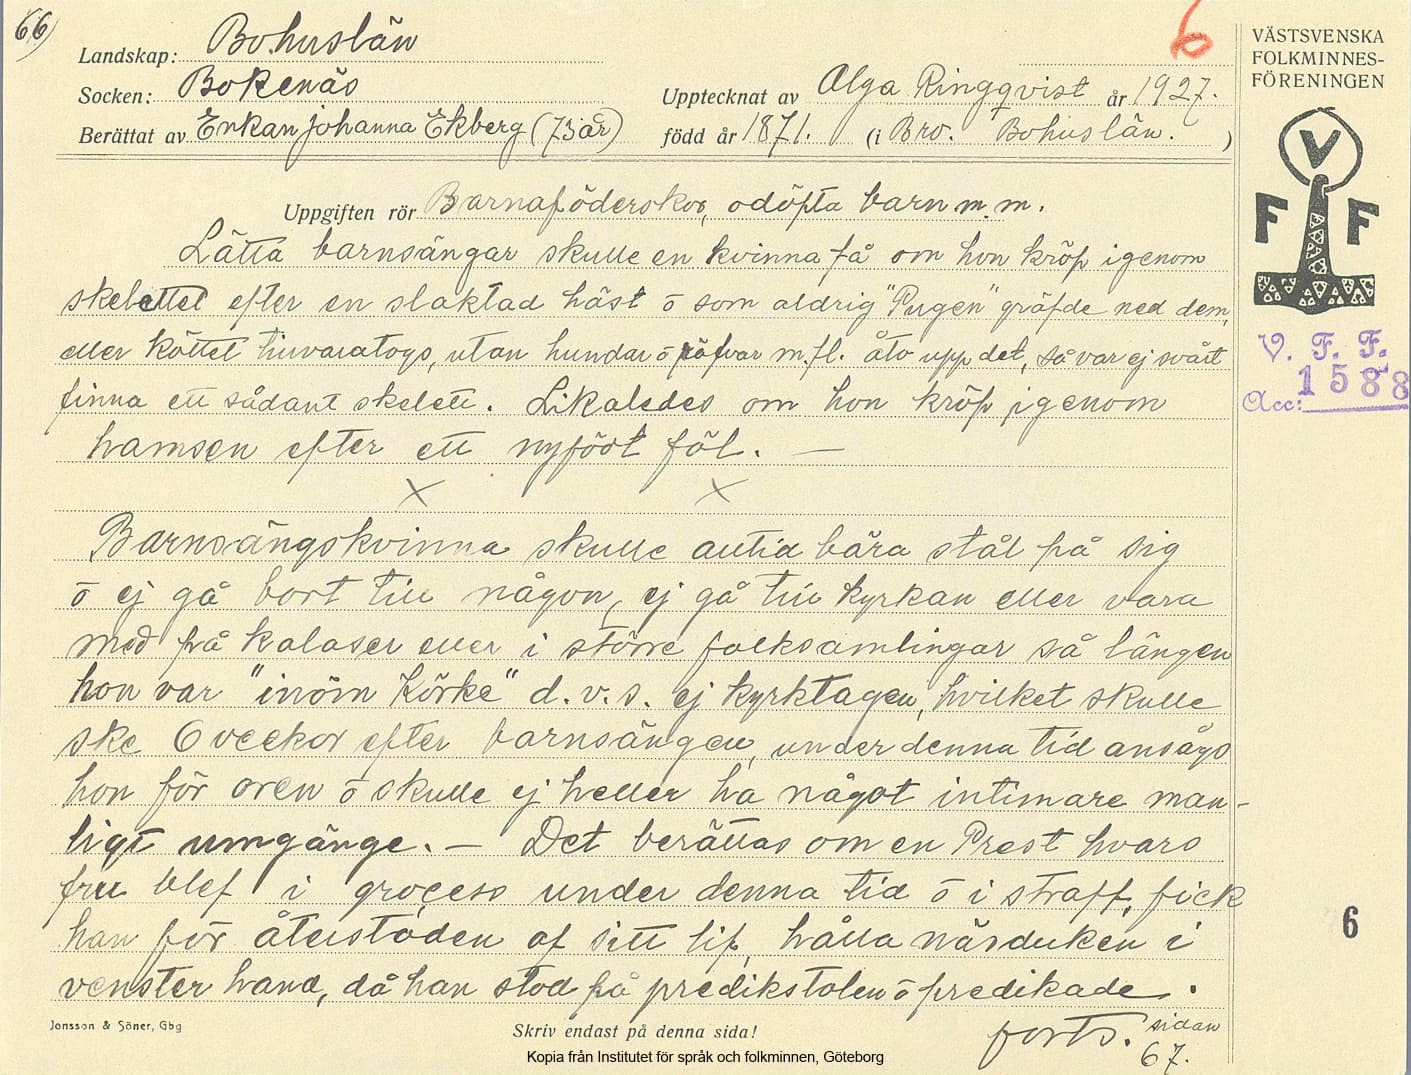 66)
Landskap: Bohuslän
Socken: Bokenäs
Berättat av Enkan Johanna Ekberg (73 år)
6
Upptecknat av Olga Ringqvist år 1927.
född år 1871. (i Bro. Bohuslän. )
VÄSTSVENSKA
FOLKMINNES-
FÖRENINGEN
V
F F
V. F. F.
Acc: 1588
Uppgiften rör Barnaföderskor, odöpta barn m.m.
Lätta barnsängar skulle en kvinna få om hon kröp igenom
skelettet efter en slaktad häst o som aldrig "Pugen" gräfde ned dem,
eller köttet tillvaratogs, utan hundar o räfvar m.fl. åto upp det, så var ej svårt
finna ett sådant skelett. Likaledes om hon kröp igenom
hamsen efter ett nyfödt föl. —
x x
Barnsängskvinna skulle alltid bära stål på sig
o ej gå bort till någon, ej gå till kyrkan eller vara
med på kalaser eller i större folksamlingar så längen
hon var "inöm körke" d.v.s. ej kyrktagen, hvilket skulle
ske 6 veckor efter barnsängen, under denna tid ansågs
hon för oren o skulle ej heller ha något intimare man-
ligt umgänge. — Det berättas om en Prest hvars
fru blef i grocess under denna tid o i straff, fick
han för återstoden af sitt lif, hålla näsduken i
venster hand, då han stod på predikstolen o predikade.
forts. sidan
67.
6
Jonsson & Söner, Gbg
Skriv endast på denna sida!
Kopia från Institutet för språk och folkminnen, Göteborg